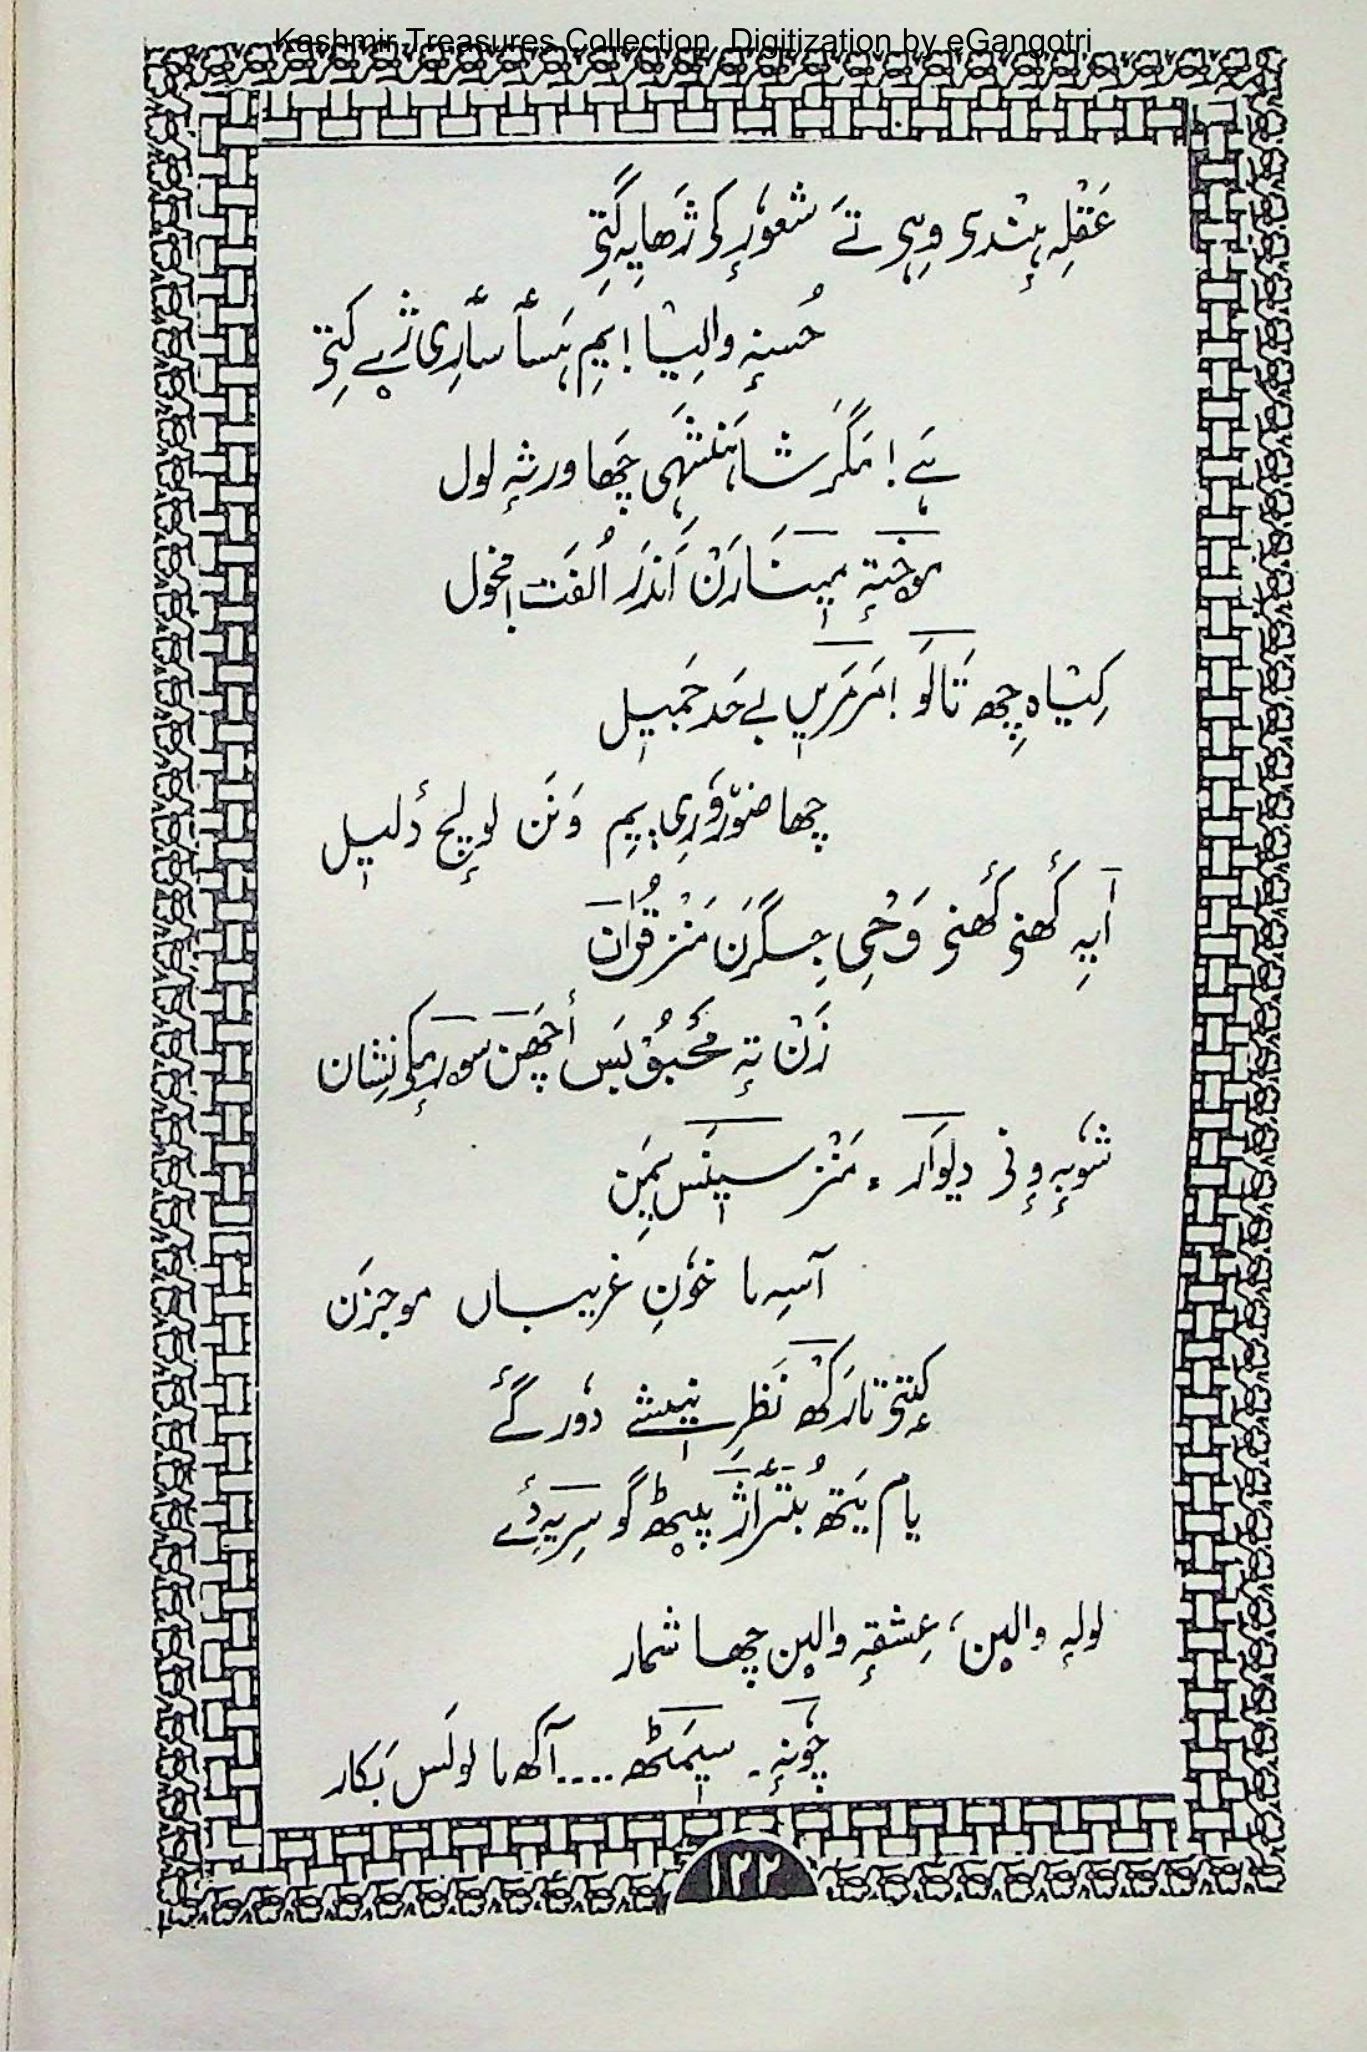 Kashmir Treasures Collection, Digitization by eGangotri
عَقلہِ ہِنٛدی وہی تَے شعوٗرٕکۍ ژھایہِ گَتۍ
حُسنہٕ والیا! یِم ہَسأ سأری ژےٚ کِتۍ
ہَے! مَگَر شاہَنشَہی چَھا ورثہٕ لول
موختہٕ میٖنارَن اَندَر اُلفَت
کیٛاہ چِھ تالَو! مَرمَریٖں بےحَد جَمیٖل
چھا ضوٗروٗری یِم وَنَن لولٕچ دٔلیٖل
آیہِ کٔھنۍ کٔھنۍ وَحی جِگرَن مَنٛز قُرآن
زَن تہٕ محبوٗبَس أچَھن سورمٕکۍ نِشان
شوٗبہٕ وٕنۍ دیوار ۔ مَنٛز سیٖنَس یِمَن
آسہِ ما خوٗنِ غریباں موجزَن
کٕتۍ تارَکھ نَظرِ نیٖشے دوٗر گٔے
یام یَتھ بُتَرأژ پیٚٹھ گو سِریہِ دٔے
لولہٕ والیٚن، عِشقہٕ والیٚن چھا شُمار
چوٗنہٕ ۔ سیٖمَٹھ .... آکھ ما لولَس بَکار
۱۲۲